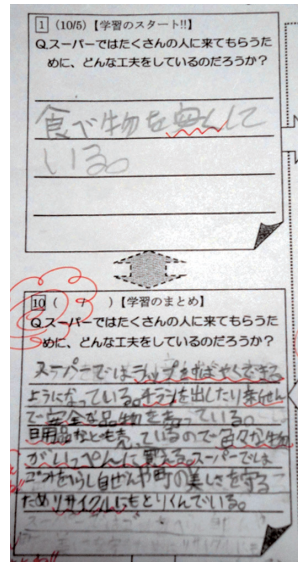 1 (10/5)【学習のスタート!!】
Q.スーパーではたくさんの人に来てもらうた
めに、どんな工夫をしているのだろうか？
食べ物を して
いる。
10 ( 9 )【学習のまとめ】
Q.スーパーではたくさんの人に来てもらうた
めに、どんな工夫をしているのだろうか？
スーパーでは すばやくできる
ようになっている。チラシを出したり
で安全な品物を売っている。
日用品なども売っているので色々な物
がいっぺんに買える。スーパーでは
ゴミをへらし自ぜんや町の美しさを守る
ためリサイクルにもとりくんでいる。